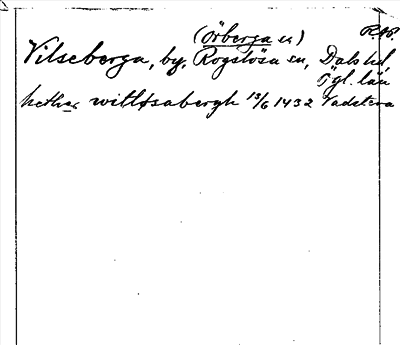 (Örberga sn) RAP.
Vilseberga, by, Rogslösa sn, Dals hd,
Ögl. län
hether willøsabergh 13/6 1432 Vadstena